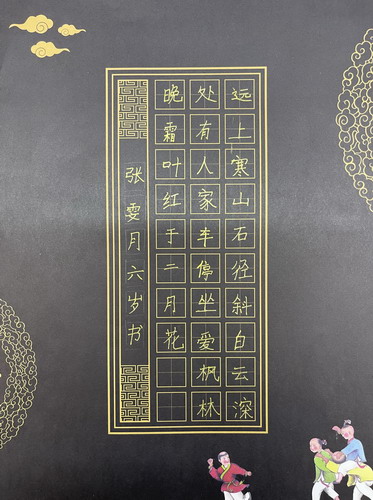 远上寒山石径斜白云深
处有人家车停坐爱枫林
晚霜叶红于二月花
张雯月六岁书